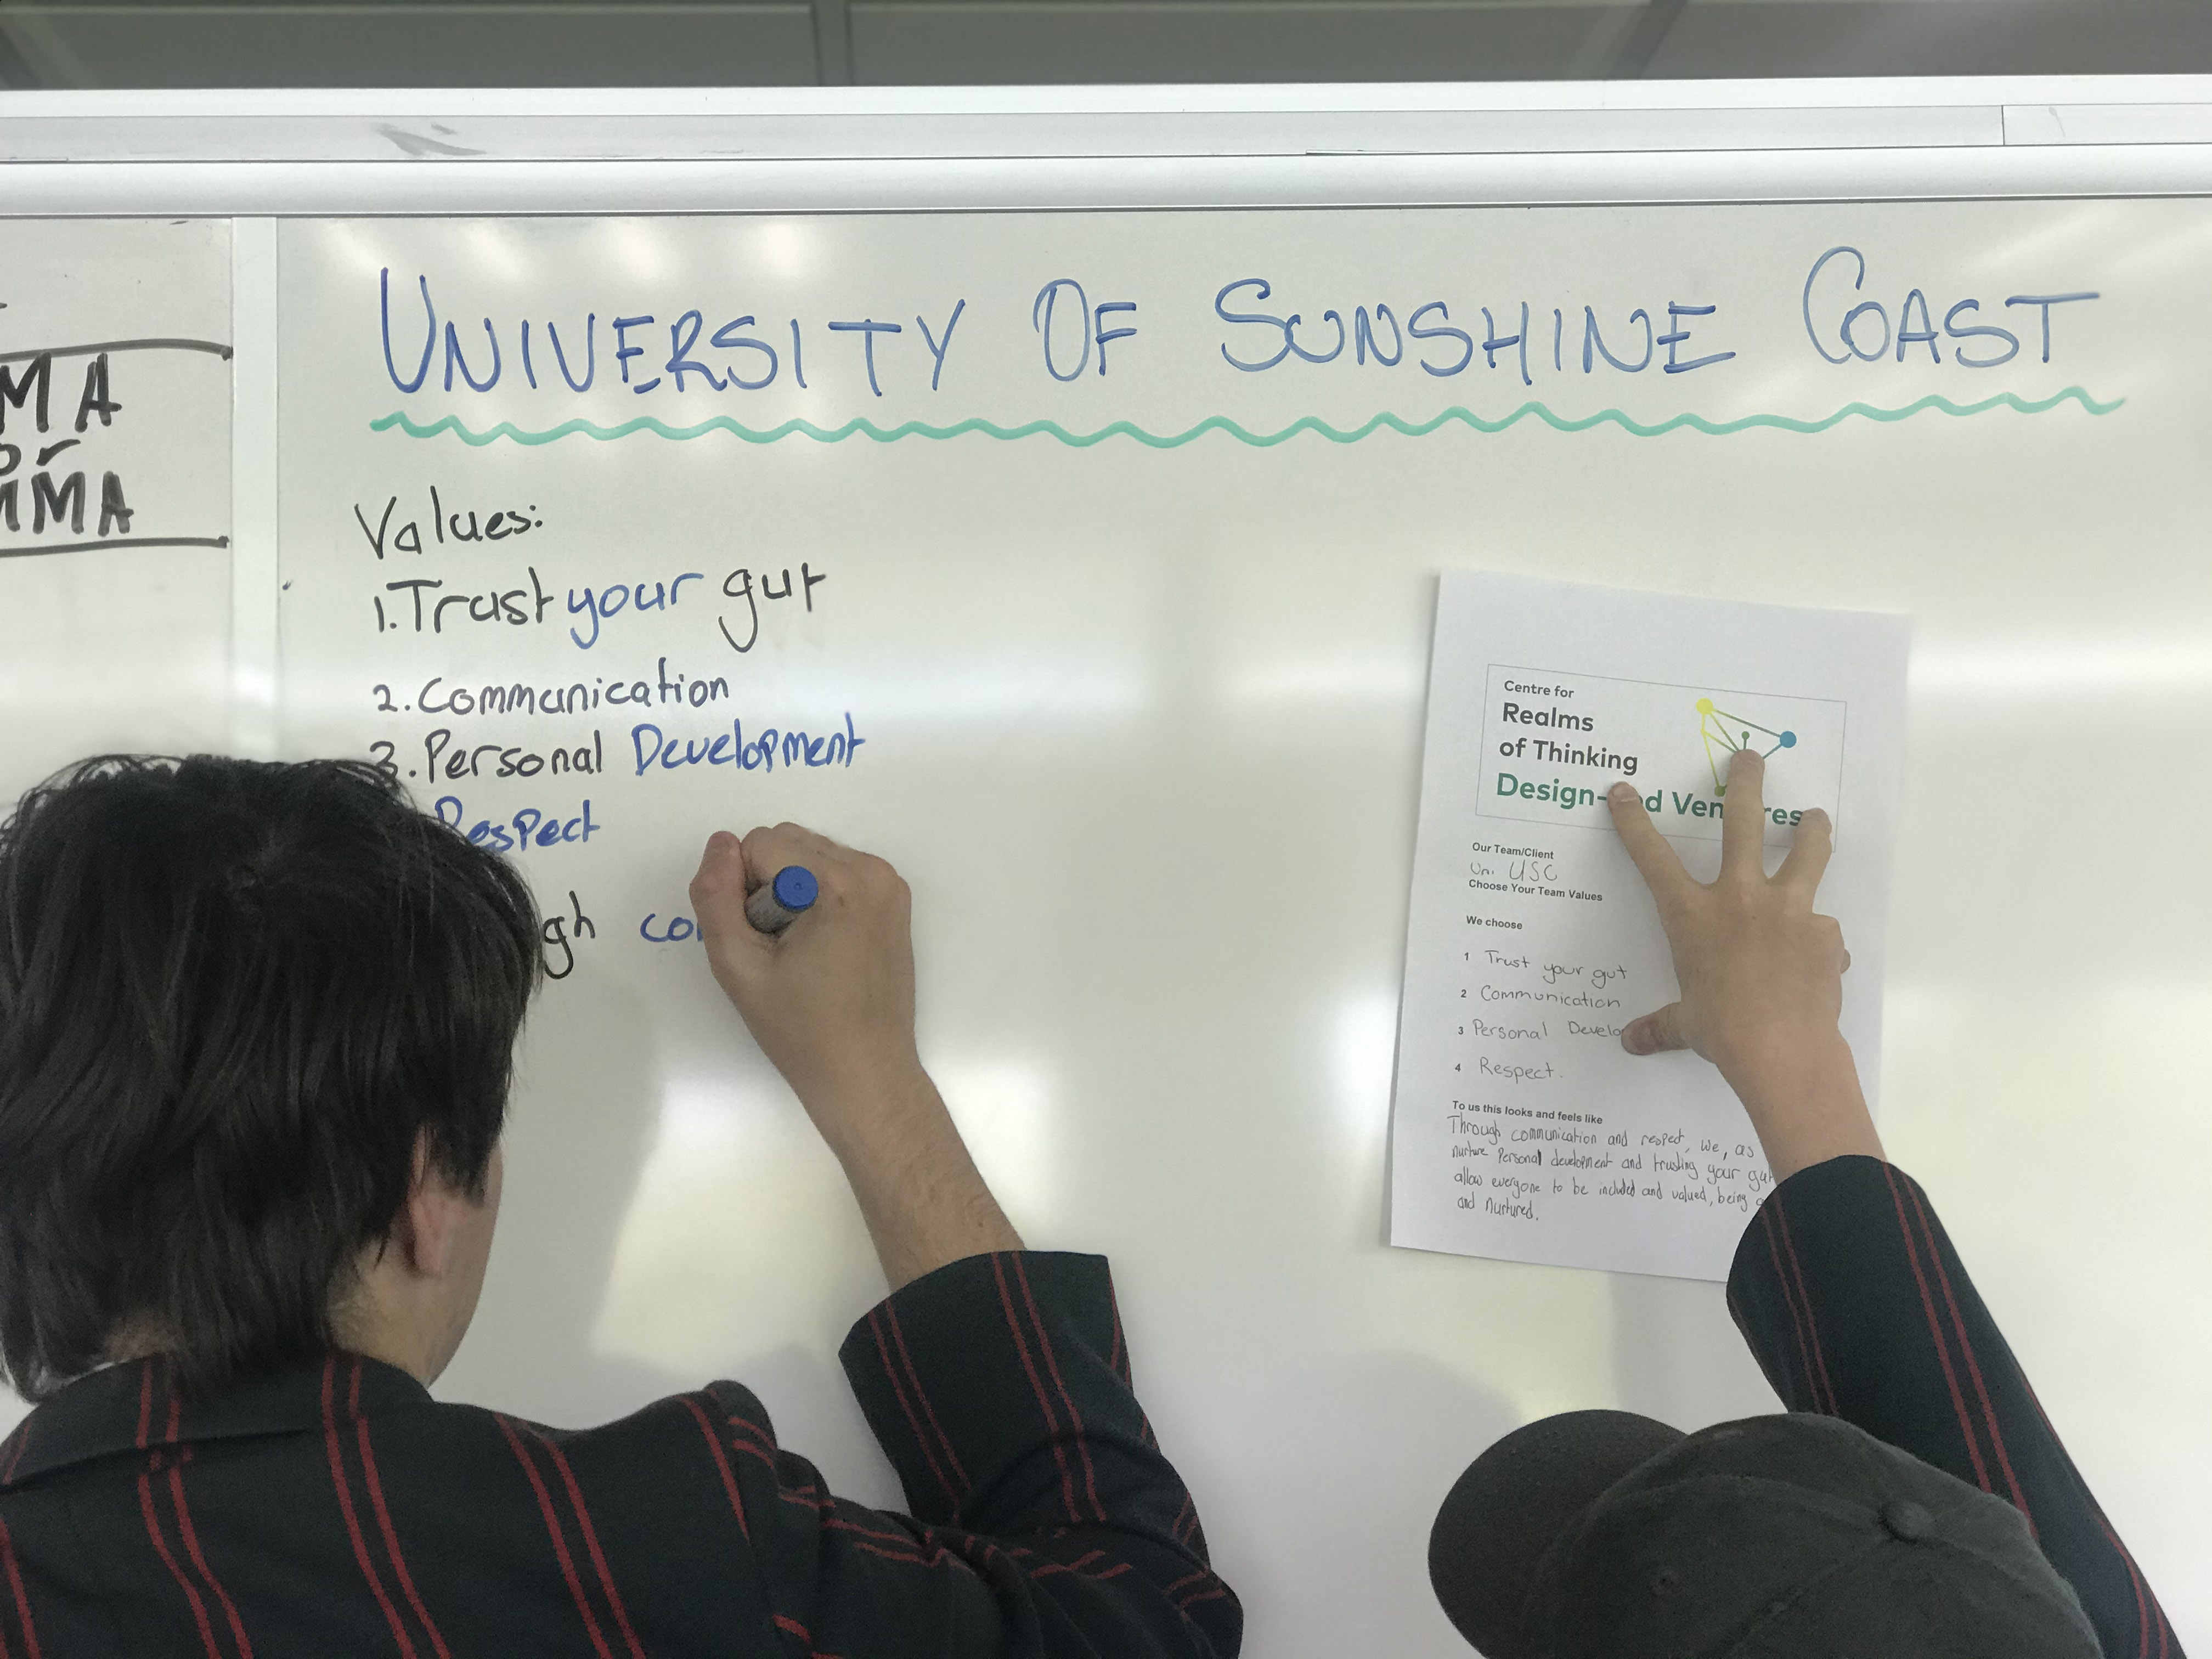 UNIVERSITY OF SUNSHINE COAST
Values:
1. Trust your gut
2. Communication
3. Personal Development
Respect
MA
or
MMA
Centre for
Realms
of Thinking
Our Team/Client
Uni USC
Choose Your Team Values
We choose
1 Trust your gut
2 Communication
3 Personal
4 Respect.
To us this looks and feels like
Through communication and respect, we, as
nurture Personal development and trusting your gut
allow everyone to be included and valued, being
and nurtured.